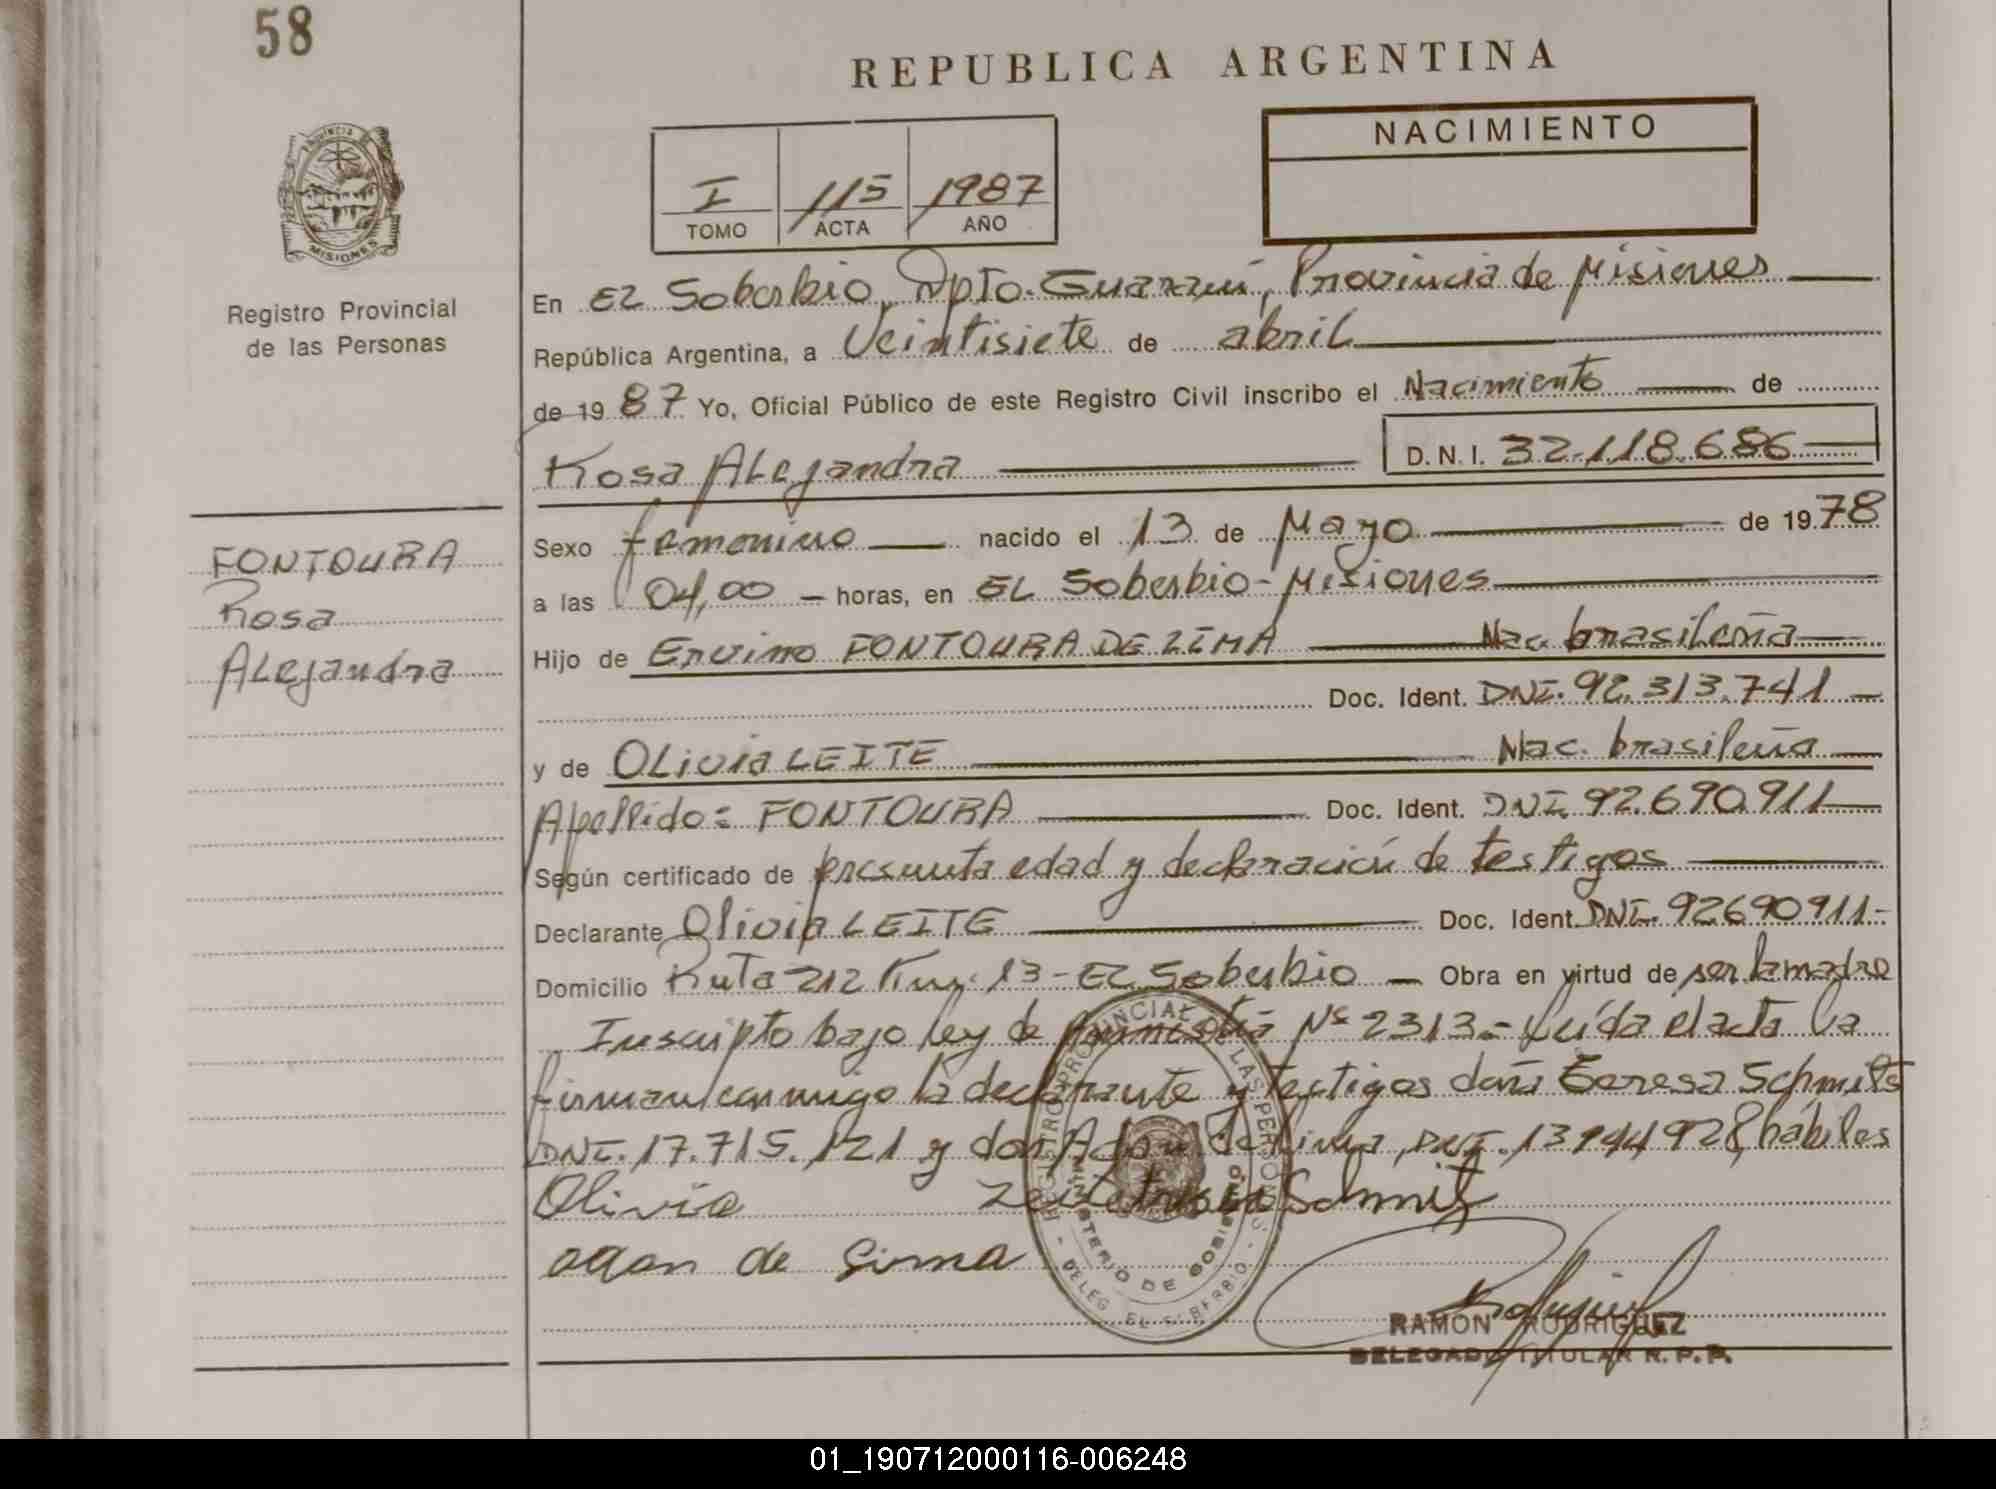 58
REPUBLICA ARGENTINA
NACIMIENTO
I 115 1987
TOMO ACTA AÑO
PROVINCIA DE MISIONES
Registro Provincial
de las Personas
FONTOURA
Rosa
Alejandra
En EL Soberbio, Dpto. Guaraní, Provincia de Misiones
República Argentina, a Veintisiete de abril
de 1987 Yo, Oficial Público de este Registro Civil inscribo el Nacimiento de
Rosa Alejandra D.N.I. 32.118.686
Sexo femenino nacido el 13 de Mayo de 1978
a las 04,00 horas, en EL Soberbio - Misiones
Hijo de Ervino FONTOURA DE LIMA Nac. brasileña
Doc. Ident. DNI. 92.313.741
y de Olivia LEITE Nac. brasileña
Apellido: FONTOURA Doc. Ident. DNI. 92.690.911
Según certificado de presunta edad y declaración de testigos
Declarante Olivia LEITE Doc. Ident. DNI. 92690911-
Domicilio Ruta 212 Km. 13 - EL Soberbio Obra en virtud de ser la madre
Inscripto bajo ley de Amnistía Nº 2313.- Leída el acta la
firman conmigo la declarante y testigos doña Teresa Schmits
DNI. 17.715.121 y don Adan de Lima, DNI. 13944928, hábiles
Olivia Leite Schmitz
adan de Lima
REGISTRO PROVINCIAL DE LAS PERSONAS
MINISTERIO DE GOBIERNO
DELEG. EL SOBERBIO
RAMON RODRIGUEZ
DELEGADO TITULAR R.P.P.
01_190712000116-006248